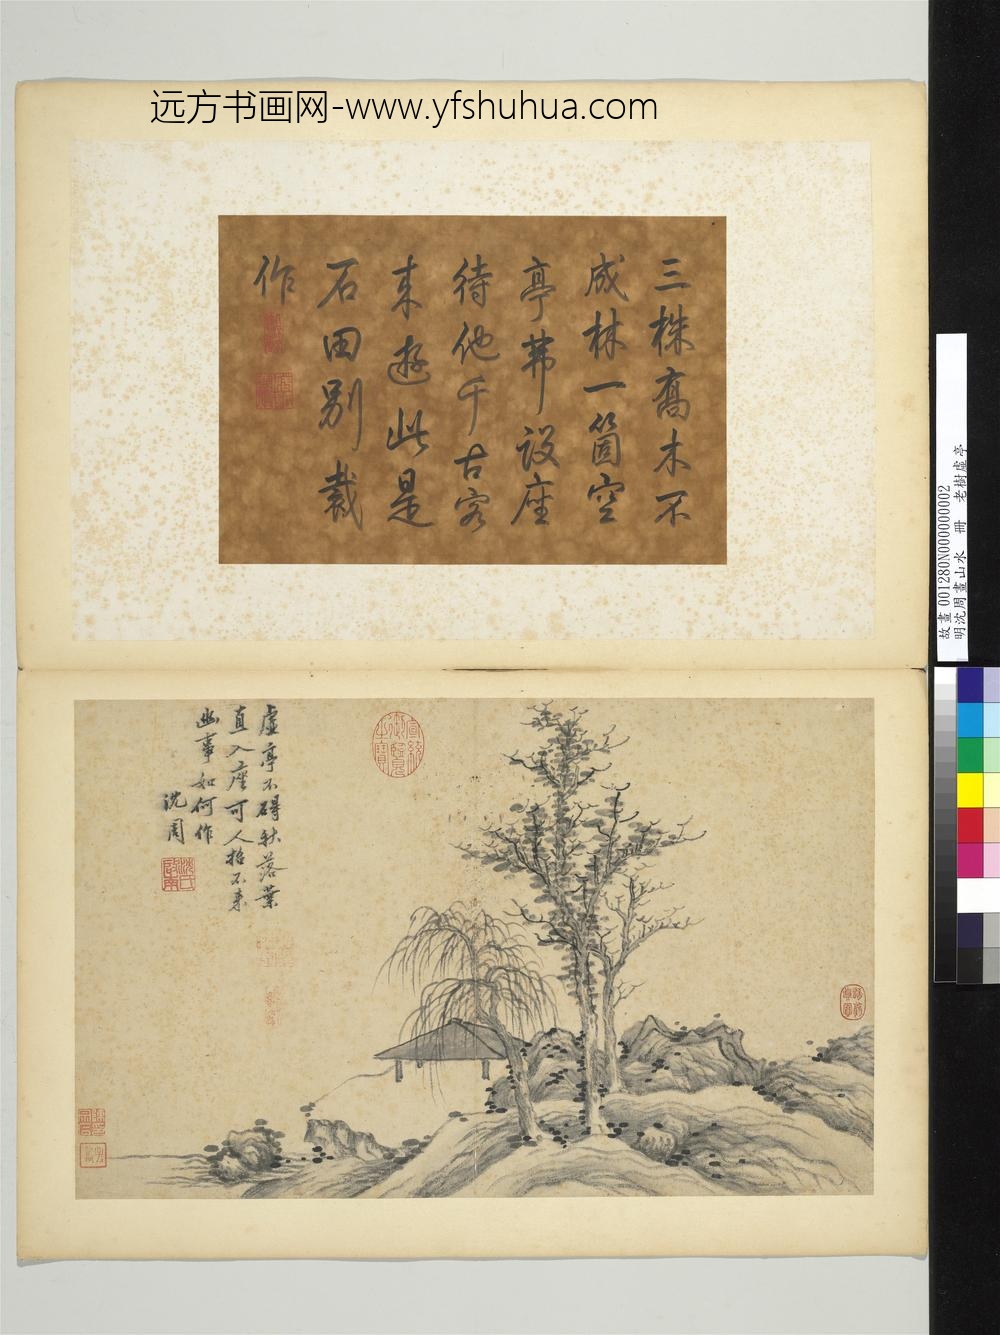 远方书画网-www.yfshuhua.com
三株高木不
成林一箇空
亭茀设座
待他千古客
来遊此是
石田别裁
作
虚亭不碍秋落葉
直入座可人招不来
幽事如何作
沈周
沈氏啟南
宣統御覽之寶
故畫 001280N000000002
明沈周畫山水 冊 老樹虛亭